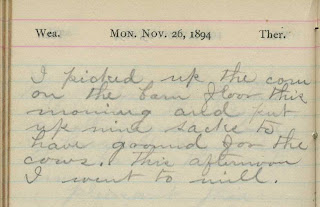 Wea. Mon. Nov. 26, 1894 Ther.
I picked up the corn
on the barn floor this
morning and put
up nine sacks to
have ground for the
cows. This afternoon
I went to mill.